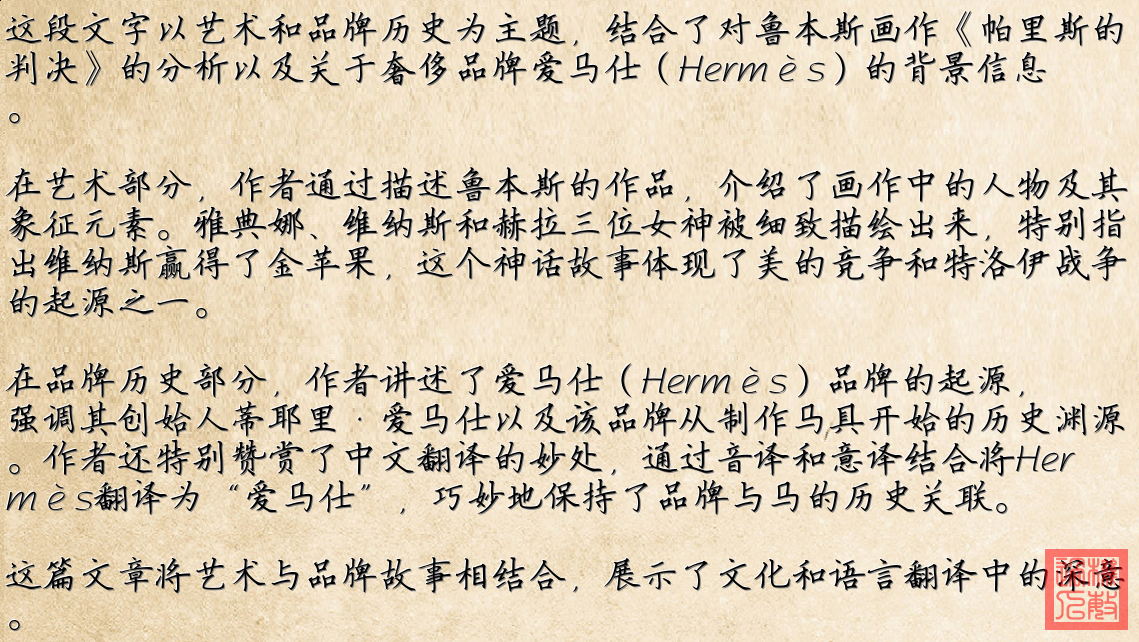 这段文字以艺术和品牌历史为主题，结合了对鲁本斯画作《帕里斯的
判决》的分析以及关于奢侈品牌爱马仕（Hermès）的背景信息
。
在艺术部分，作者通过描述鲁本斯的作品，介绍了画作中的人物及其
象征元素。雅典娜、维纳斯和赫拉三位女神被细致描绘出来，特别指
出维纳斯赢得了金苹果，这个神话故事体现了美的竞争和特洛伊战争
的起源之一。
在品牌历史部分，作者讲述了爱马仕（Hermès）品牌的起源，
强调其创始人蒂耶里·爱马仕以及该品牌从制作马具开始的历史渊源
。作者还特别赞赏了中文翻译的妙处，通过音译和意译结合将Her
mès翻译为“爱马仕”，巧妙地保持了品牌与马的历史关联。
这篇文章将艺术与品牌故事相结合，展示了文化和语言翻译中的深意
。